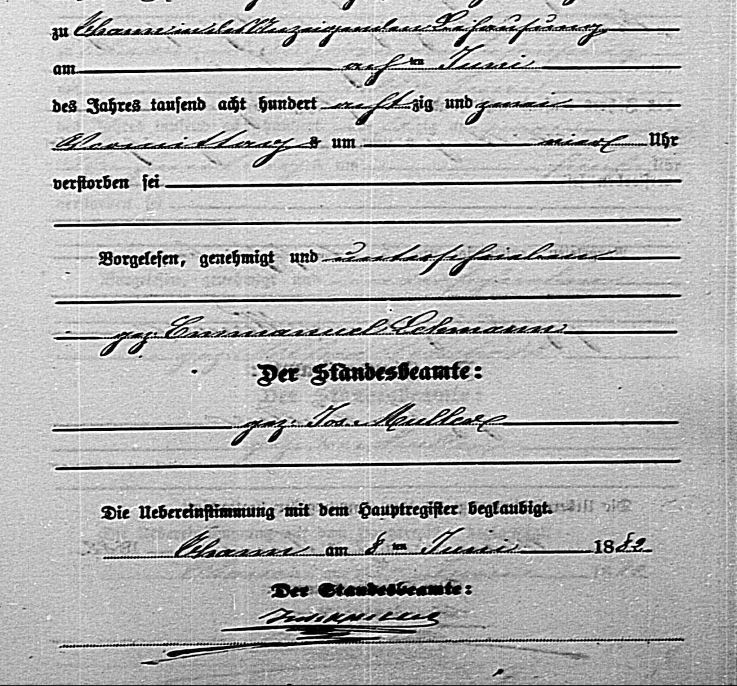 zu Thann in des Anzeigenden Behausung
am acht ten Juni
des Jahres tausend acht hundert achtzig und zwei
Vormittags um vier Uhr
verstorben sei
Vorgelesen, genehmigt und unterschrieben
gez. Emmanuel Lehmann
Der Standesbeamte:
gez. Jos. Muller
Die Uebereinstimmung mit dem Hauptregister beglaubigt.
Thann am 8 ten Juni 1882
Der Standesbeamte: